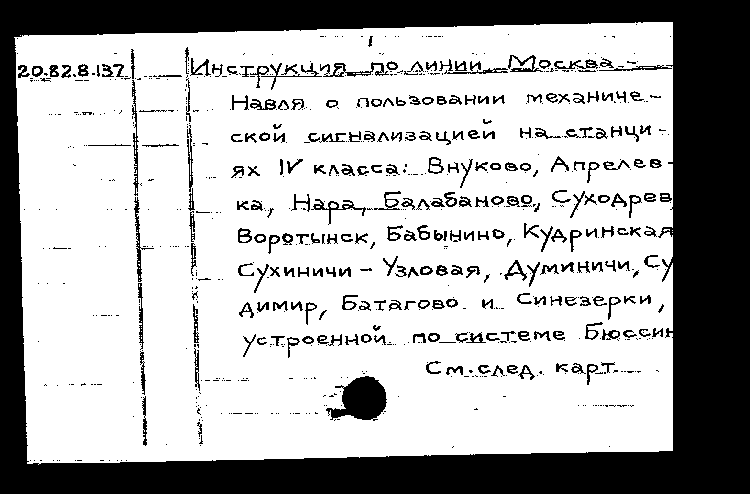 20.82.8.137 Инструкция по линии Москва -
Навля о пользовании механиче-
ской сигнализацией на станци-
ях IV класса: Внуково, Апрелев-
ка, Нара, Балабаново, Суходрев
Воротынск, Бабынино, Кудринская
Сухиничи - Узловая, Думиничи, Су
димир, Батагово и Синезерки,
устроенной по системе Бюссин
См. след. карт.